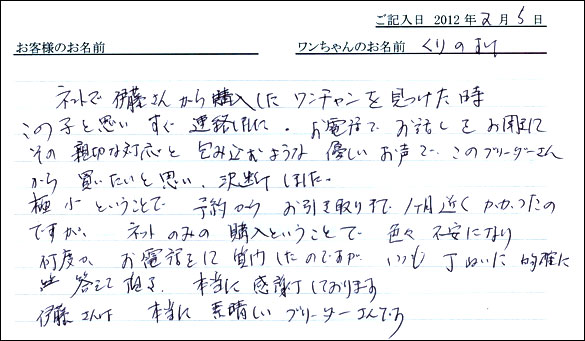 ご記入日 2012年2月5日
お客様のお名前 ワンちゃんのお名前 くりのすけ
ネットで 伊藤さんから購入した ワンチャンを見つけた時
この子と思い すぐ 連絡しました。 お電話で お話しをお聞きし
その 親切な対応と 包み込むような 優しい お声で このブリーダーさん
から 買いたいと思い、決断しました。
極小ということで 予約から お引き取りまで 1ヶ月近く かかったの
ですが、 ネットのみの 購入ということで 色々 不安になり
何度か お電話をして 質問したのですが いつも 丁ねいに 的確に
答えて頂き、 本当に 感謝しております
伊藤さんは 本当に 素晴しい ブリーダーさんです